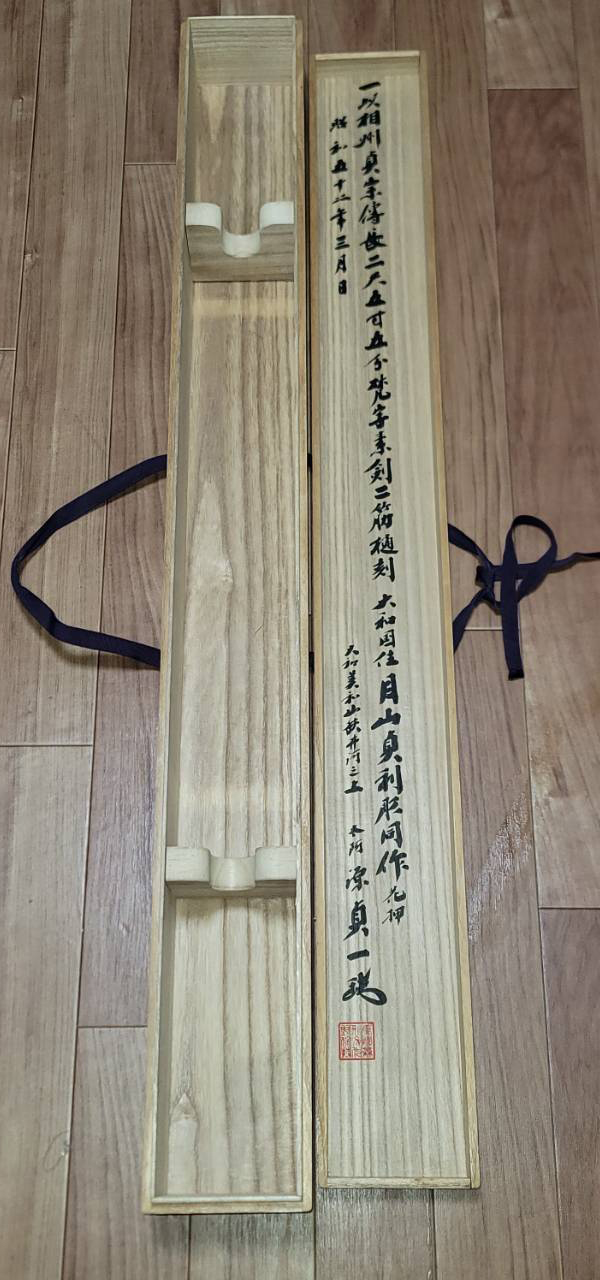 一以相州貞宗傳長二尺五寸五分梵字素剣二筋樋刻
大和国住月山貞利彫同作 花押
昭和五十二年三月日
大和美和山狭井河之上 太阿 源貞一